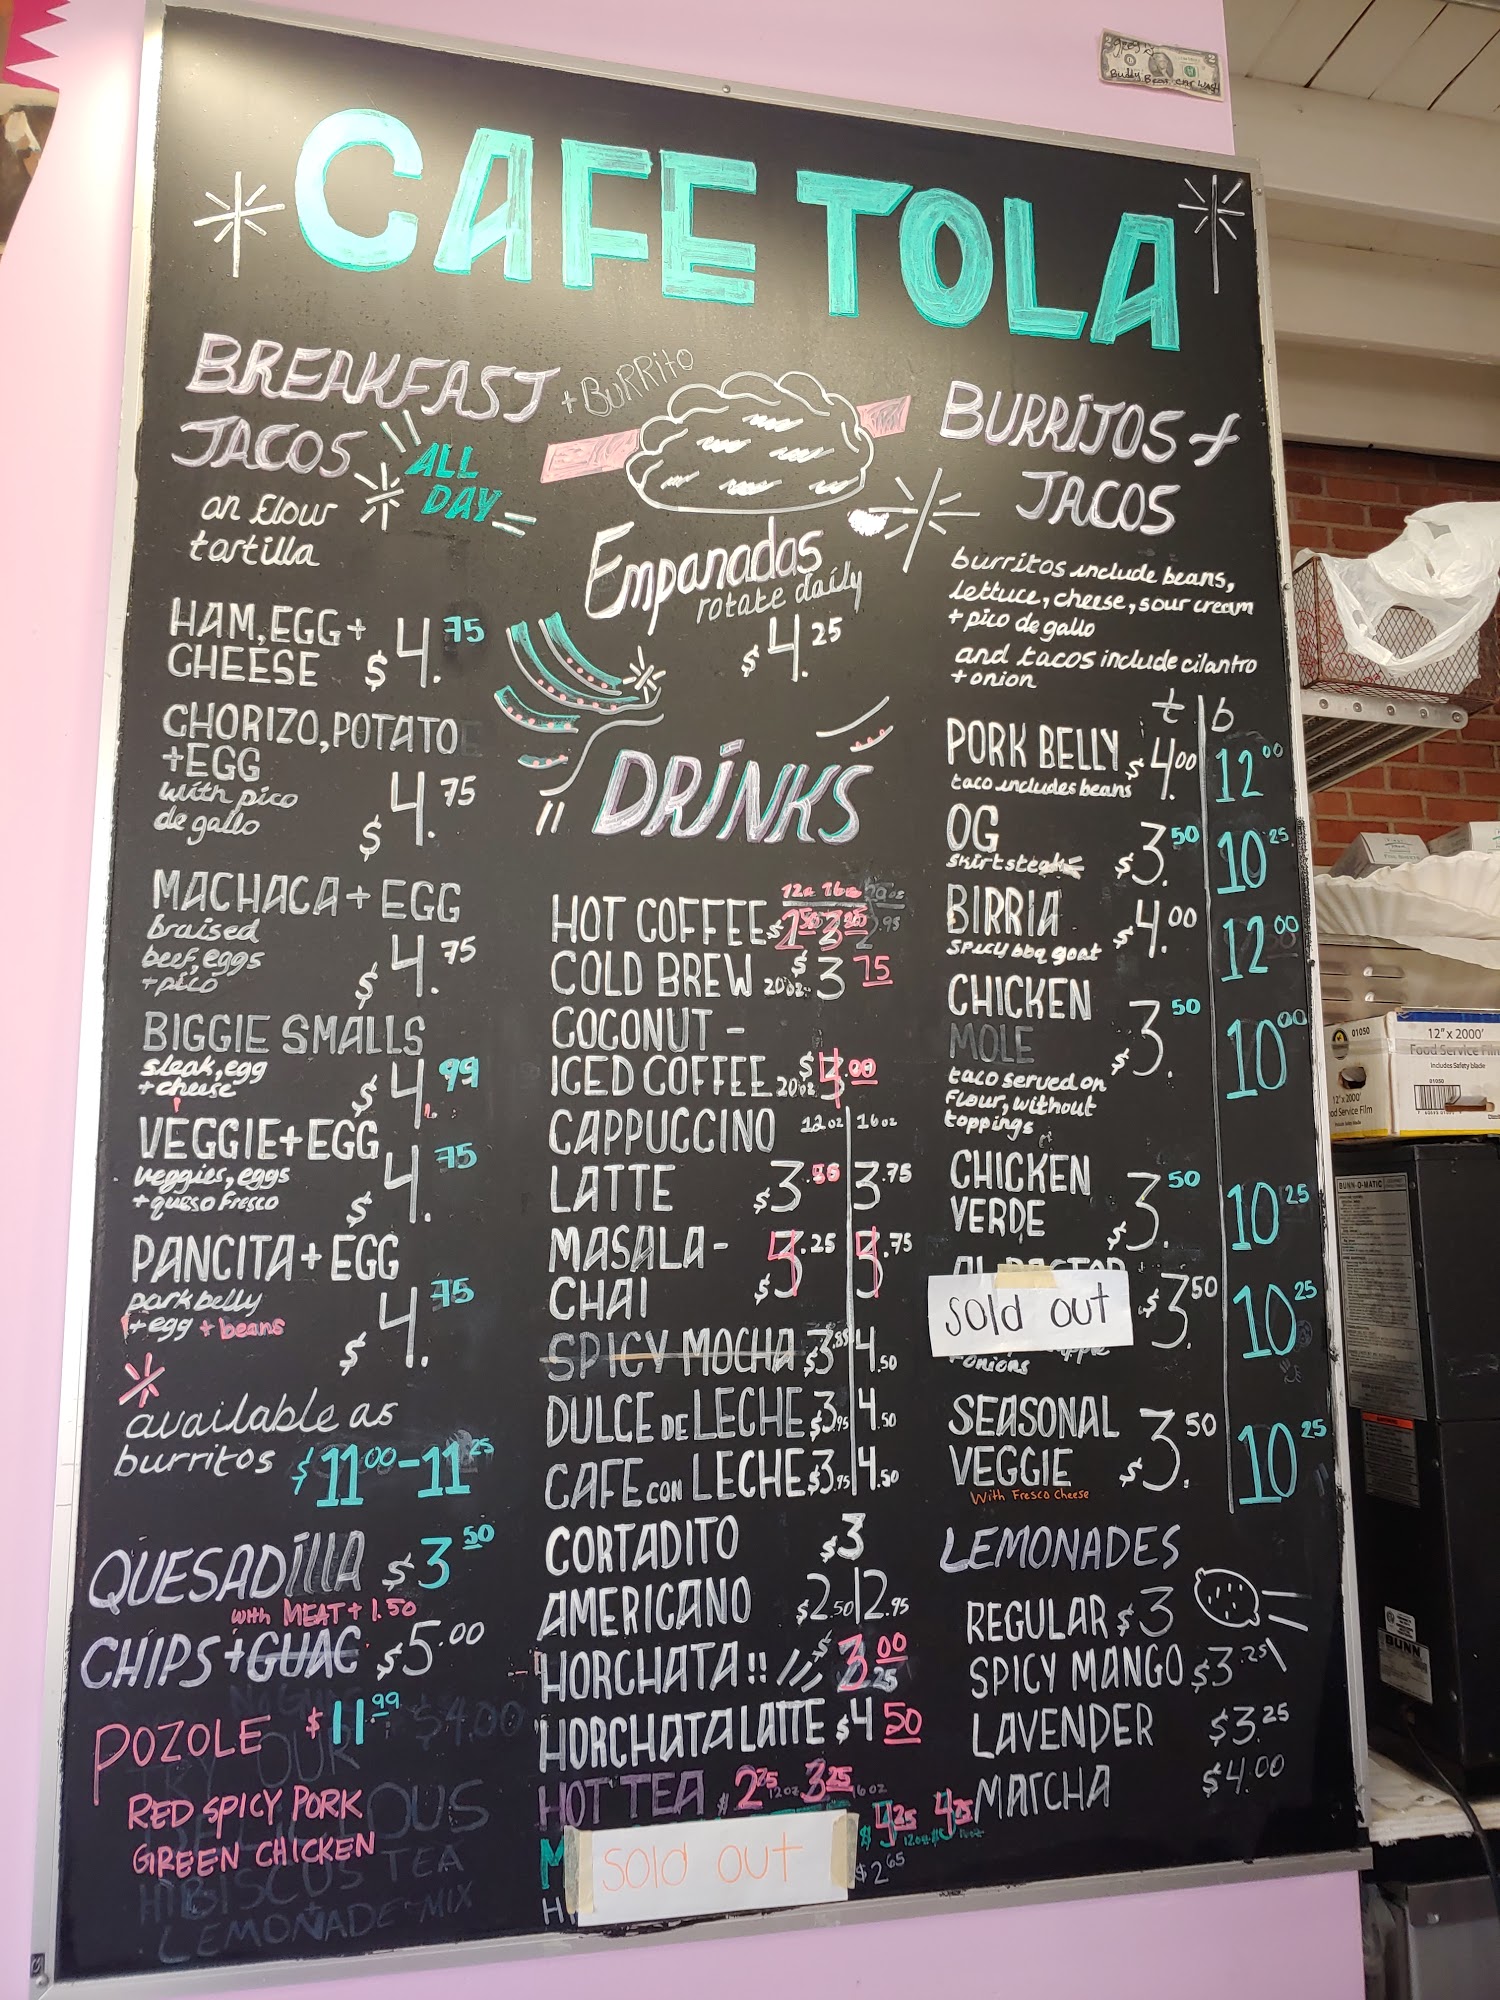 CAFE TOLA
BREAKFAST + BURRITO
TACOS
ALL
DAY
on flour
tortilla
HAM, EGG +
CHEESE $4.75
CHORIZO, POTATO
+ EGG
with pico
de gallo $4.75
MACHACA + EGG
braised
beef, eggs
+ pico $4.75
BIGGIE SMALLS
steak, egg
+ cheese $4.99
VEGGIE + EGG
veggies, eggs
+ queso fresco $4.75
PANCITA + EGG
pork belly
+ egg + beans $4.75
available as
burritos $11.00-11.25
QUESADILLA $3.50
with MEAT + 1.50
CHIPS + GUAC $5.00
POZOLE $11.99
RED SPICY PORK
GREEN CHICKEN
HIBISCUS TEA
LEMONADE MIX
Empanadas
rotate daily
$4.25
DRINKS
12oz 16oz
HOT COFFEE
COLD BREW 20oz. $3.75
COCONUT -
ICED COFFEE 20oz $4.00
CAPPUCCINO 12oz | 16oz
LATTE $3. | 3.75
MASALA -
CHAI
SPICY MOCHA $3. | 4.50
DULCE DE LECHE $3.95 | 4.50
CAFE CON LECHE $3.95 | 4.50
CORTADITO $3
AMERICANO $2.50 | 2.95
HORCHATA!! $3.00
HORCHATA LATTE $4.50
HOT TEA $2.75 12oz 3.25 16oz
sold out
$4.25 4.75
$2.65
BURRITOS +
TACOS
burritos include beans,
lettuce, cheese, sour cream
+ pico de gallo
and tacos include cilantro
+ onion
t | b
PORK BELLY $4.00 | 12.00
taco includes beans
OG $3.50 | 10.25
skirt steak
BIRRIA $4.00 | 12.00
spicy bbq goat
CHICKEN
MOLE $3.50 | 10.00
taco served on
flour, without
toppings
CHICKEN
VERDE $3.50 | 10.25
AL PASTOR
sold out $3.50 | 10.25
+ onions
SEASONAL
VEGGIE $3.50 | 10.25
With Fresco Cheese
LEMONADES
REGULAR $3
SPICY MANGO $3.25
LAVENDER $3.25
MATCHA $4.00
12" x 2000'
Food Service Film
Includes Safety blade
01050
BUNN-O-MATIC
BUNN